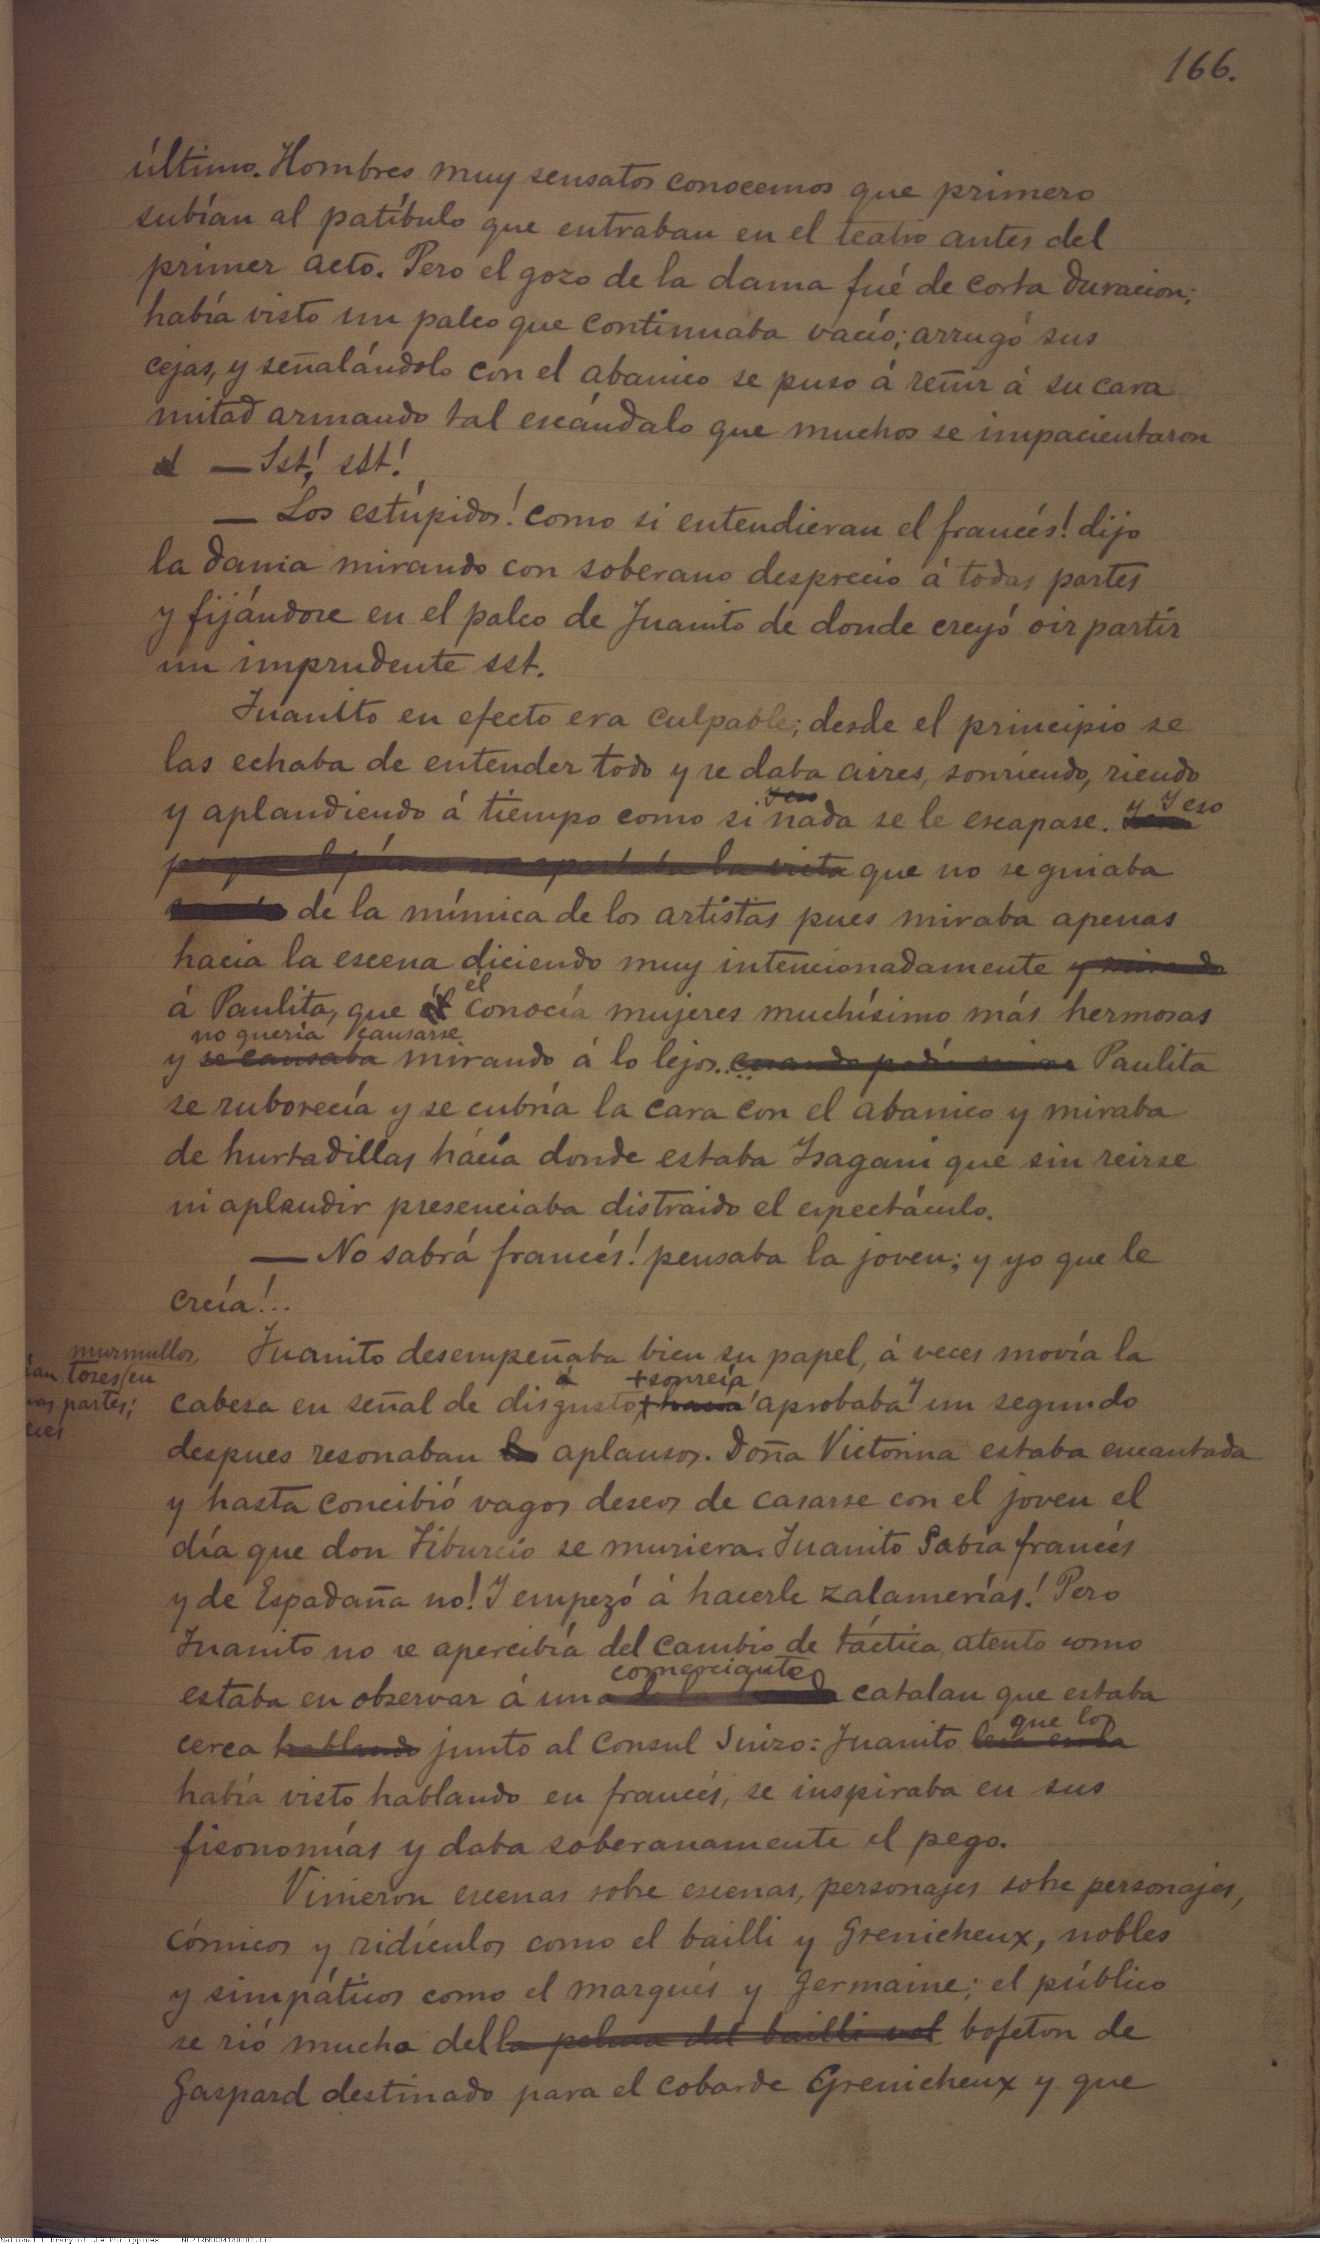 166.
último. Hombres muy sensatos conocemos que primero
subían al patíbulo que entraban en el teatro antes del
primer acto. Pero el gozo de la dama fué de corta duracion;
había visto un palco que continuaba vacío; arrugó sus
cejas, y señalándolo con el abanico se puso á reñir á su cara
mitad armando tal escándalo que muchos se impacientaron
— Sst! sst!
— Los estúpidos! como si entendieran el francés! dijo
la dama mirando con soberano desprecio á todas partes
y fijándose en el palco de Juanito de donde creyó oir partir
un imprudente sst.
Juanito en efecto era culpable; desde el principio se
las echaba de entender todo y se daba aires, sonriendo, riendo
y aplaudiendo á tiempo como si nada se le escapase. Y eso
que no se guiaba
de la mímica de los artistas pues miraba apenas
hacia la escena diciendo muy intencionadamente y mirando
á Paulita, que él conocía mujeres muchísimo más hermosas
no quería cansarse
y se cansaba mirando á lo lejos... Paulita
se ruborecía y se cubría la cara con el abanico y miraba
de hurtadillas hácia donde estaba Isagani que sin reirse
ni aplaudir presenciaba distraido el espectáculo.
— No sabrá francés! pensaba la joven; y yo que le
creía!..
murmullos,
toses en
partes;
Juanito desempeñaba bien su papel, á veces movía la
+ sonreía
cabeza en señal de disgusto, aprobaba y un segundo
despues resonaban aplausos. Doña Victorina estaba encantada
y hasta concibió vagos deseos de casarse con el joven el
día que don Tiburcio se muriera. Juanito sabía francés
y de Espadaña no! Y empezó á hacerle zalamerías! Pero
Juanito no se apercibía del cambio de táctica, atento como
comerciante
estaba en observar á un catalan que estaba
que los
cerca hablando junto al Consul Suizo: Juanito
había visto hablando en francés, se inspiraba en sus
fisonomías y daba soberanamente el pego.
Vinieron escenas sobre escenas, personajes sobre personajes,
cómicos y ridículos como el bailli y Grenicheux, nobles
y simpáticos como el marqués y Germaine; el público
se rió mucho del bofeton de
Gaspard destinado para el cobarde Grenicheux y que